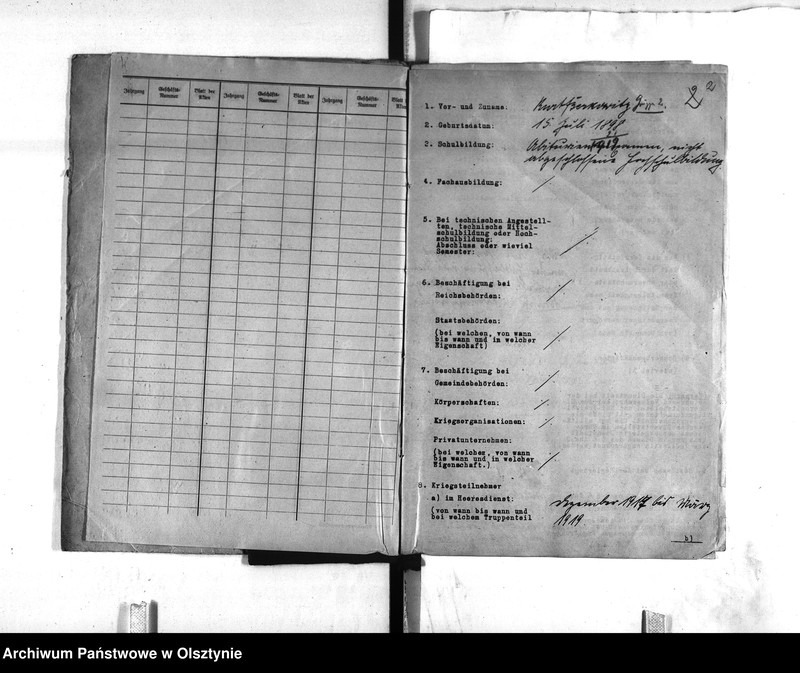 Jahrgang Geschäfts-Nummer Blatt der Akten Jahrgang Geschäfts-Nummer Blatt der Akten Jahrgang Geschäfts-Nummer Blatt
2
1. Vor- und Zuname: Kurt
2. Geburtsdatum: 15. Juli 1898
3. Schulbildung: nicht
abgeschlossene Hochschulbildung
4. Fachausbildung: /
5. Bei technischen Angestell-
ten, technische Mittel-
schulbildung oder Hoch-
schulbildung:
Abschluss oder wieviel
Semester: /
6. Beschäftigung bei
Reichsbehörden: /
Staatsbehörden:
(bei welchen, von wann
bis wann und in welcher
Eigenschaft) /
7. Beschäftigung bei
Gemeindebehörden: /
Körperschaften: /
Kriegsorganisationen: /
Privatunternehmen:
(bei welchen, von wann
bis wann und in welcher
Eigenschaft.) /
8. Kriegsteilnehmer
a) im Heeresdienst: Dezember 1917 bis März
(von wann bis wann und
bei welchem Truppenteil 1919
b)
Archiwum Państwowe w Olsztynie